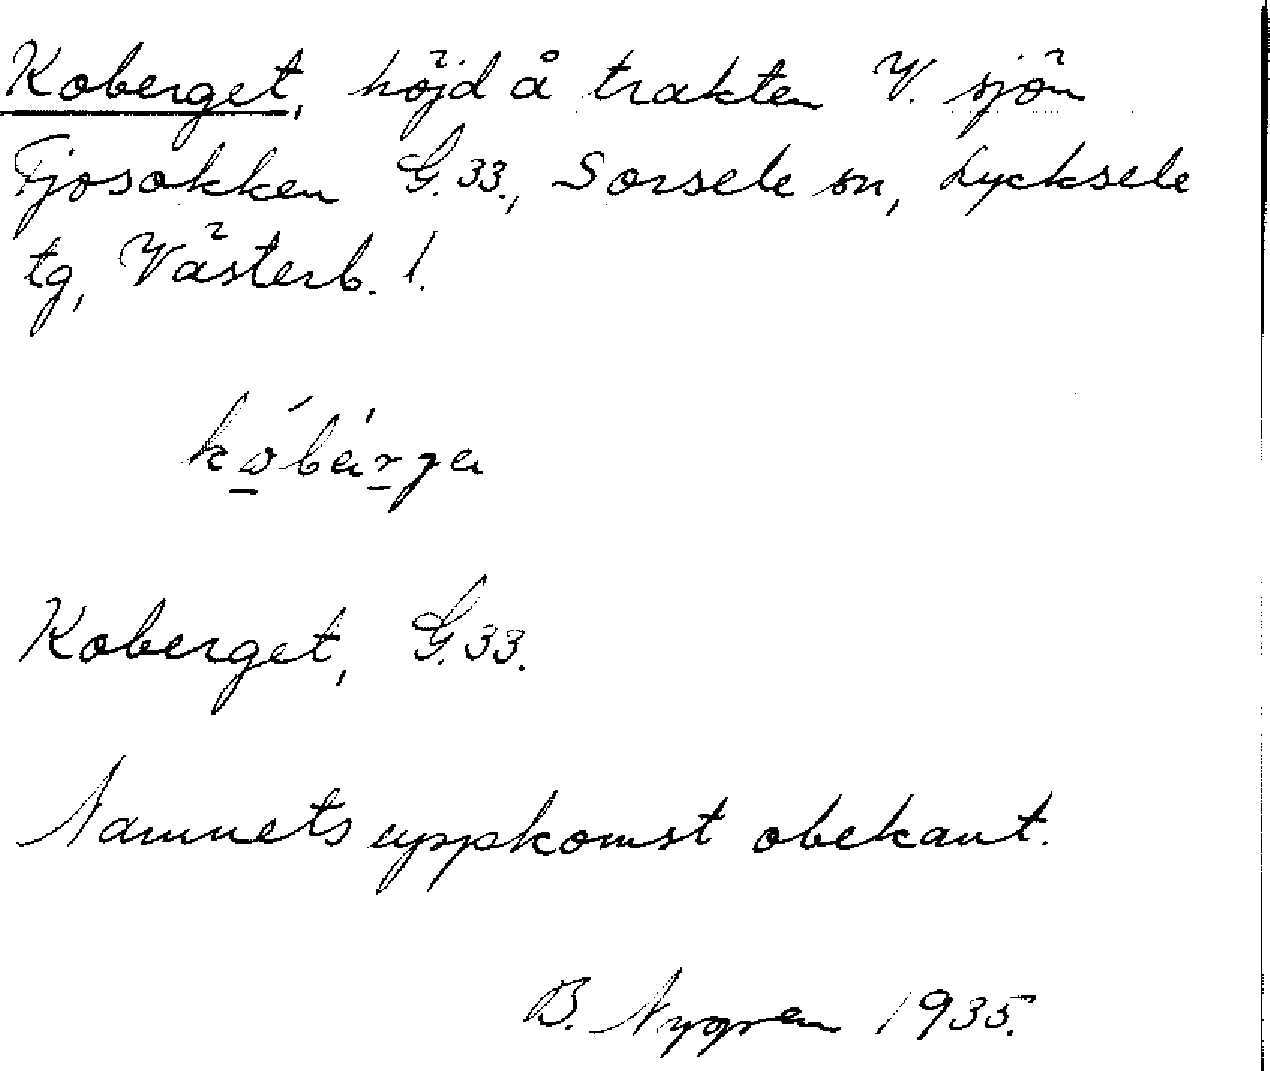 Koberget, höjd å trakten V. sjön
Fjosokken G.33., Sorsele sn, Lycksele
tg, Västerb. l.
Koberget, G.33.
Namnets uppkomst obekant.
B. Nygren 1935.